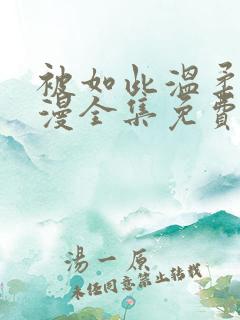 被如此溫柔
漫全集免費
湯一原
未经同意禁止转载